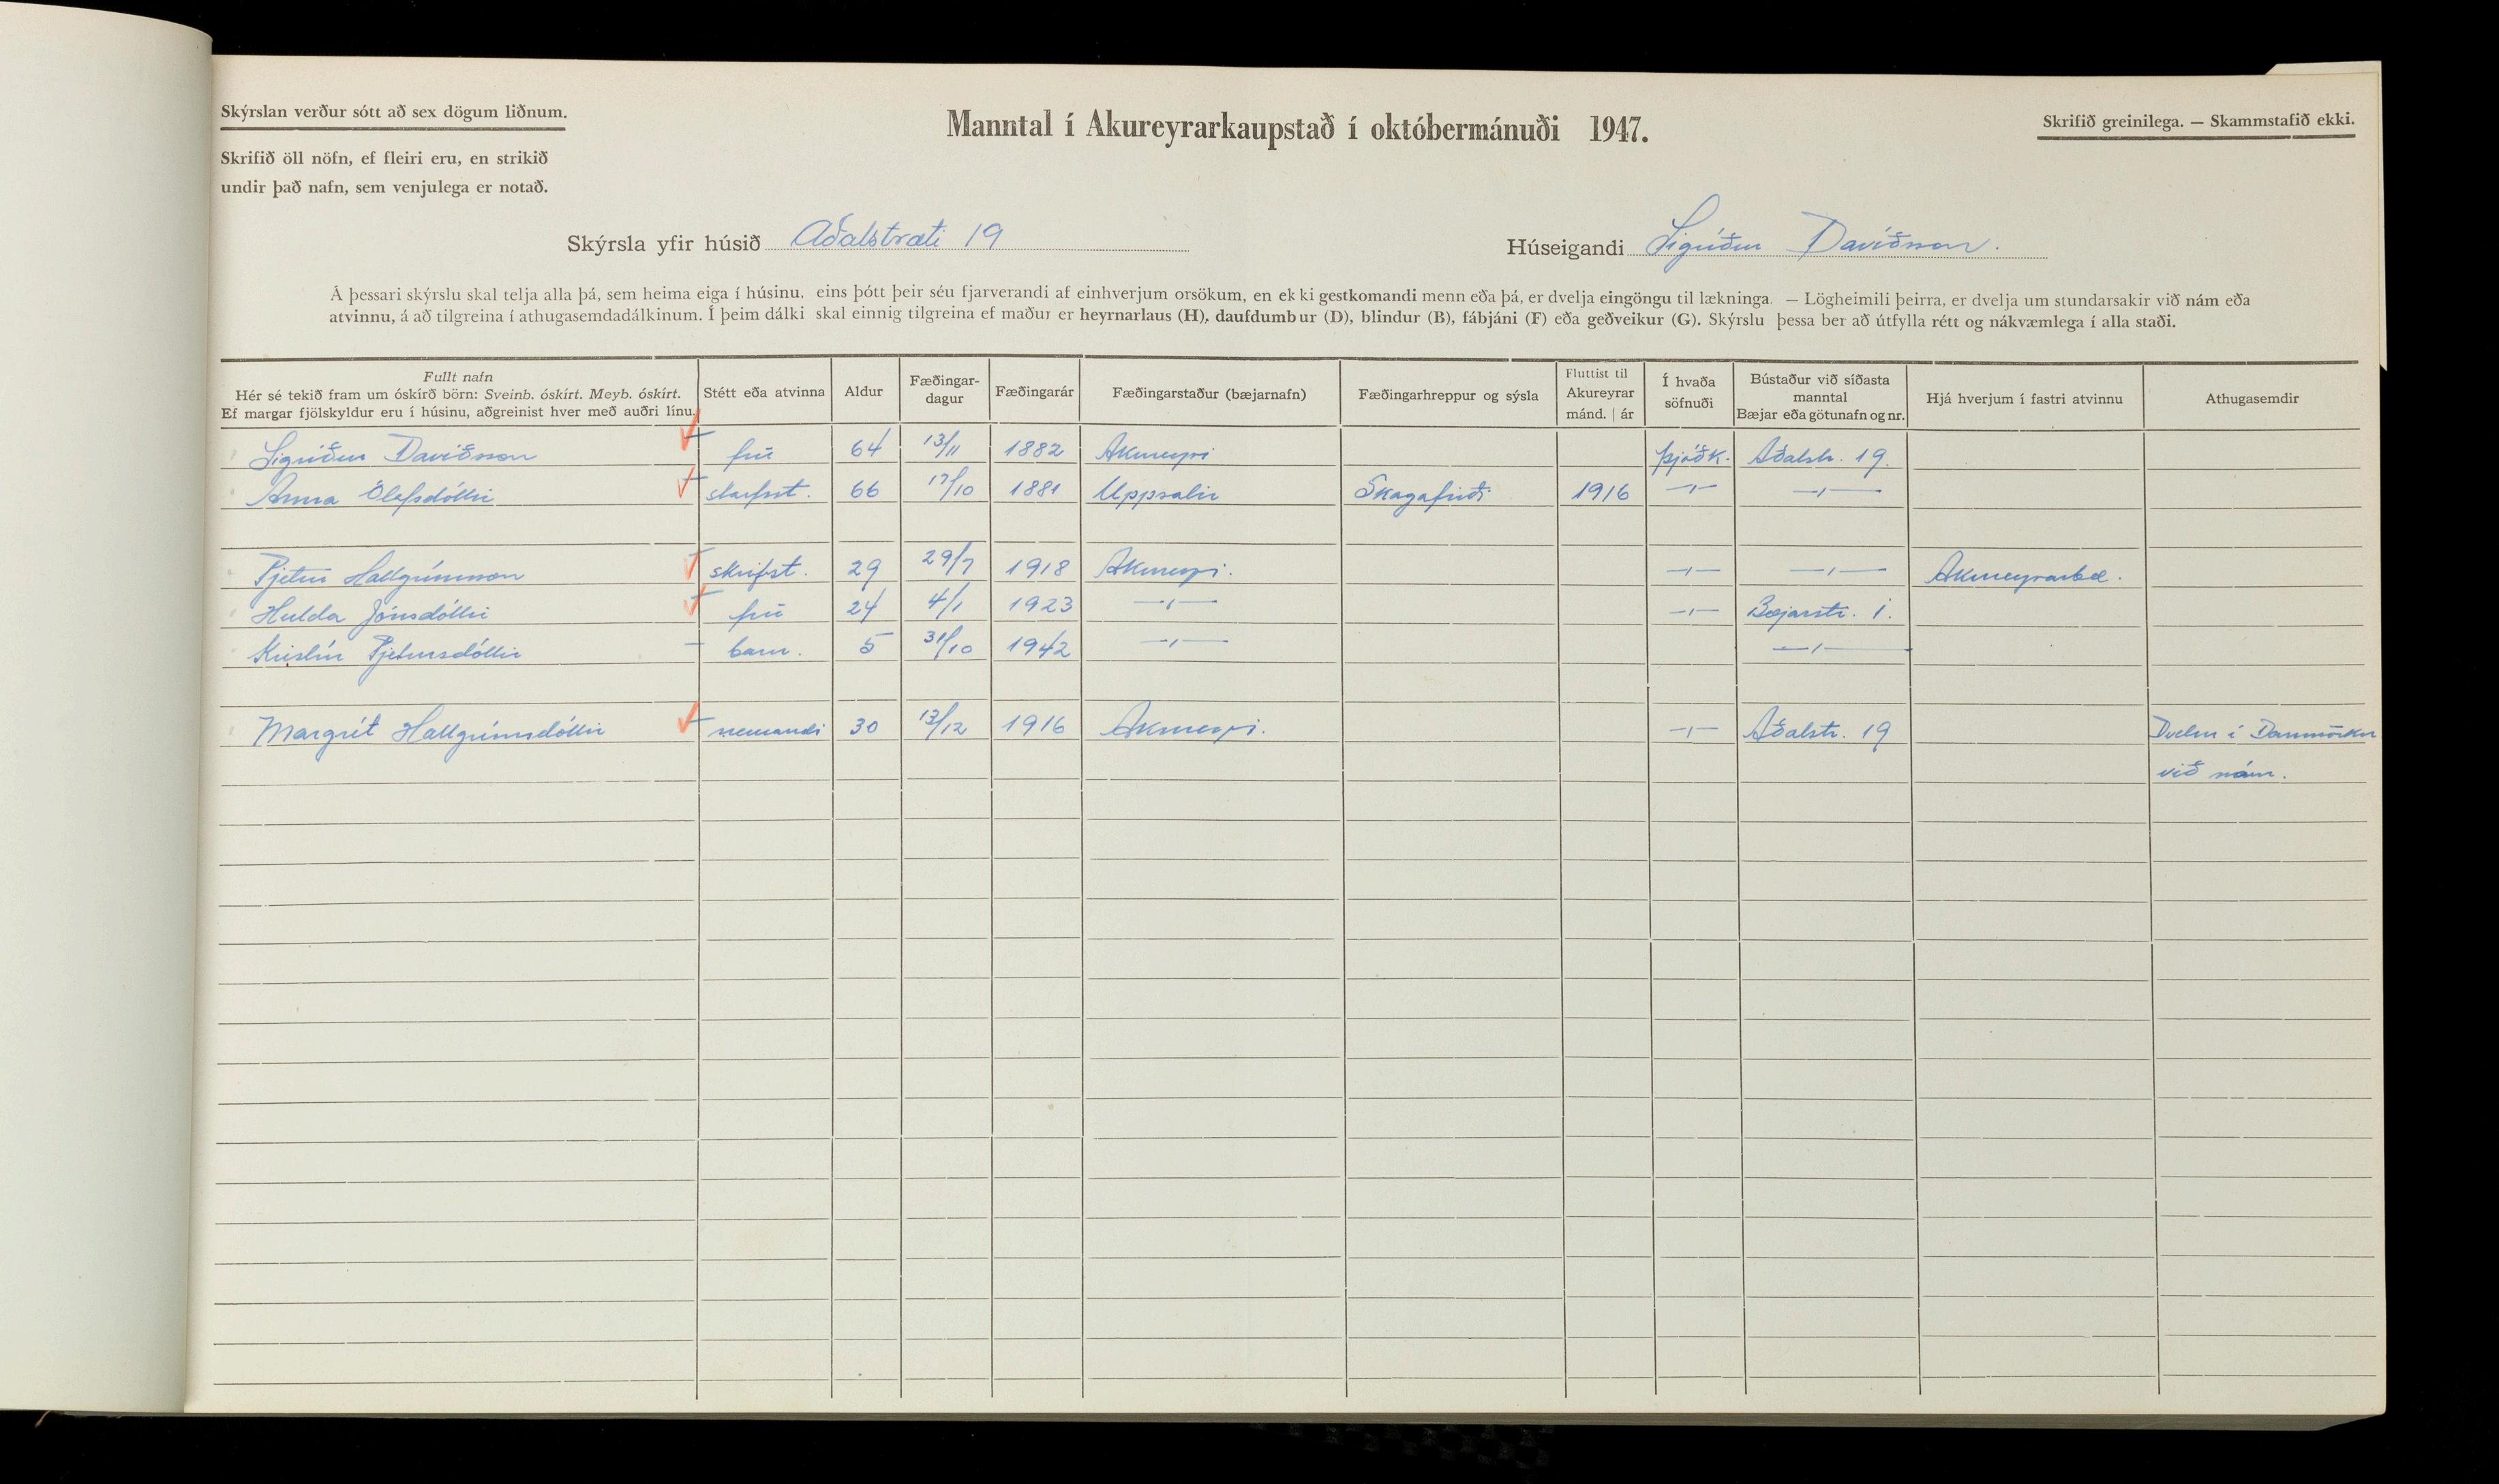 Skýrslan verður sótt að sex dögum liðnum.
Skrifið öll nöfn, ef fleiri eru, en strikið
undir það nafn, sem venjulega er notað.
Manntal í Akureyrarkaupstað í októbermánuði 1947.
Skrifið greinilega. — Skammstafið ekki.
Skýrsla yfir húsið Aðalstræti 19
Húseigandi Sigríður Davíðsson.
Á þessari skýrslu skal telja alla þá, sem heima eiga í húsinu, eins þótt þeir séu fjarverandi af einhverjum orsökum, en ekki gestkomandi menn eða þá, er dvelja eingöngu til lækninga. — Lögheimili þeirra, er dvelja um stundarsakir við nám eða
atvinnu, á að tilgreina í athugasemdadálkinum. Í þeim dálki skal einnig tilgreina ef maður er heyrnarlaus (H), daufdumbur (D), blindur (B), fábjáni (F) eða geðveikur (G). Skýrslu þessa ber að útfylla rétt og nákvæmlega í alla staði.
Fullt nafn
Hér sé tekið fram um óskírð börn: Sveinb. óskírt. Meyb. óskírt.
Ef margar fjölskyldur eru í húsinu, aðgreinist hver með auðri línu.
Stétt eða atvinna
Aldur
Fæðingar-
dagur
Fæðingarár
Fæðingarstaður (bæjarnafn)
Fæðingarhreppur og sýsla
Fluttist til
Akureyrar
mánd. | ár
Í hvaða
söfnuði
Bústaður við síðasta
manntal
Bæjar eða götunafn og nr.
Hjá hverjum í fastri atvinnu
Athugasemdir
Sigríður Davíðsson frú 64 13/11 1882 Akureyri þjóðk. Aðalstr. 19.
Anna Ólafsdóttir starfsst. 66 17/10 1881 Uppsalir Skagafirði 1916 —〃— —〃—
Pjetur Hallgrímsson skrifst. 29 29/7 1918 Akureyri. —〃— —〃— Akureyrarbæ.
Hulda Jónsdóttir frú 24 4/1 1923 —〃— —〃— Bæjarstr. 1.
Kristín Pjetursdóttir barn. 5 31/10 1942 —〃— —〃—
Margrét Hallgrímsdóttir nemandi 30 13/12 1916 Akureyri. —〃— Aðalstr. 19 Dvelur í Danmörku
við nám.